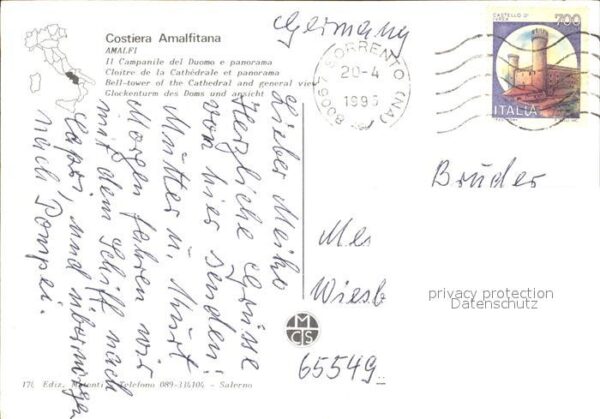 Costiera Amalfitana
AMALFI
Il Campanile del Duomo e panorama
Cloitre de la Cathédrale et panorama
Bell-tower of the Cathedral and general view
Glockenturm des Doms und ansicht
Germany
80067 SORRENTO (NA)
20-4
1995
CASTELLO DI
IVREA
700
ITALIA
Lieber Meiko
Herzliche Grüsse
von hier senden:
Mutter u. Kurt
Morgen fahren wir
mit dem Schiff nach
Capri, und übermorgen
nach Pompei.
Bruder
Mei
Wiesb
65549
privacy protection
Datenschutz
MCS
Ediz. Matonti - Telefono 089-330100 - Salerno